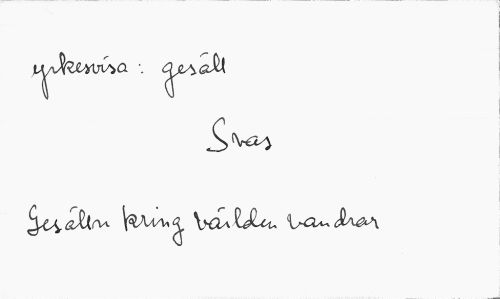 yrkesvisa: gesäll
Svas
Gesällen kring världen vandrar